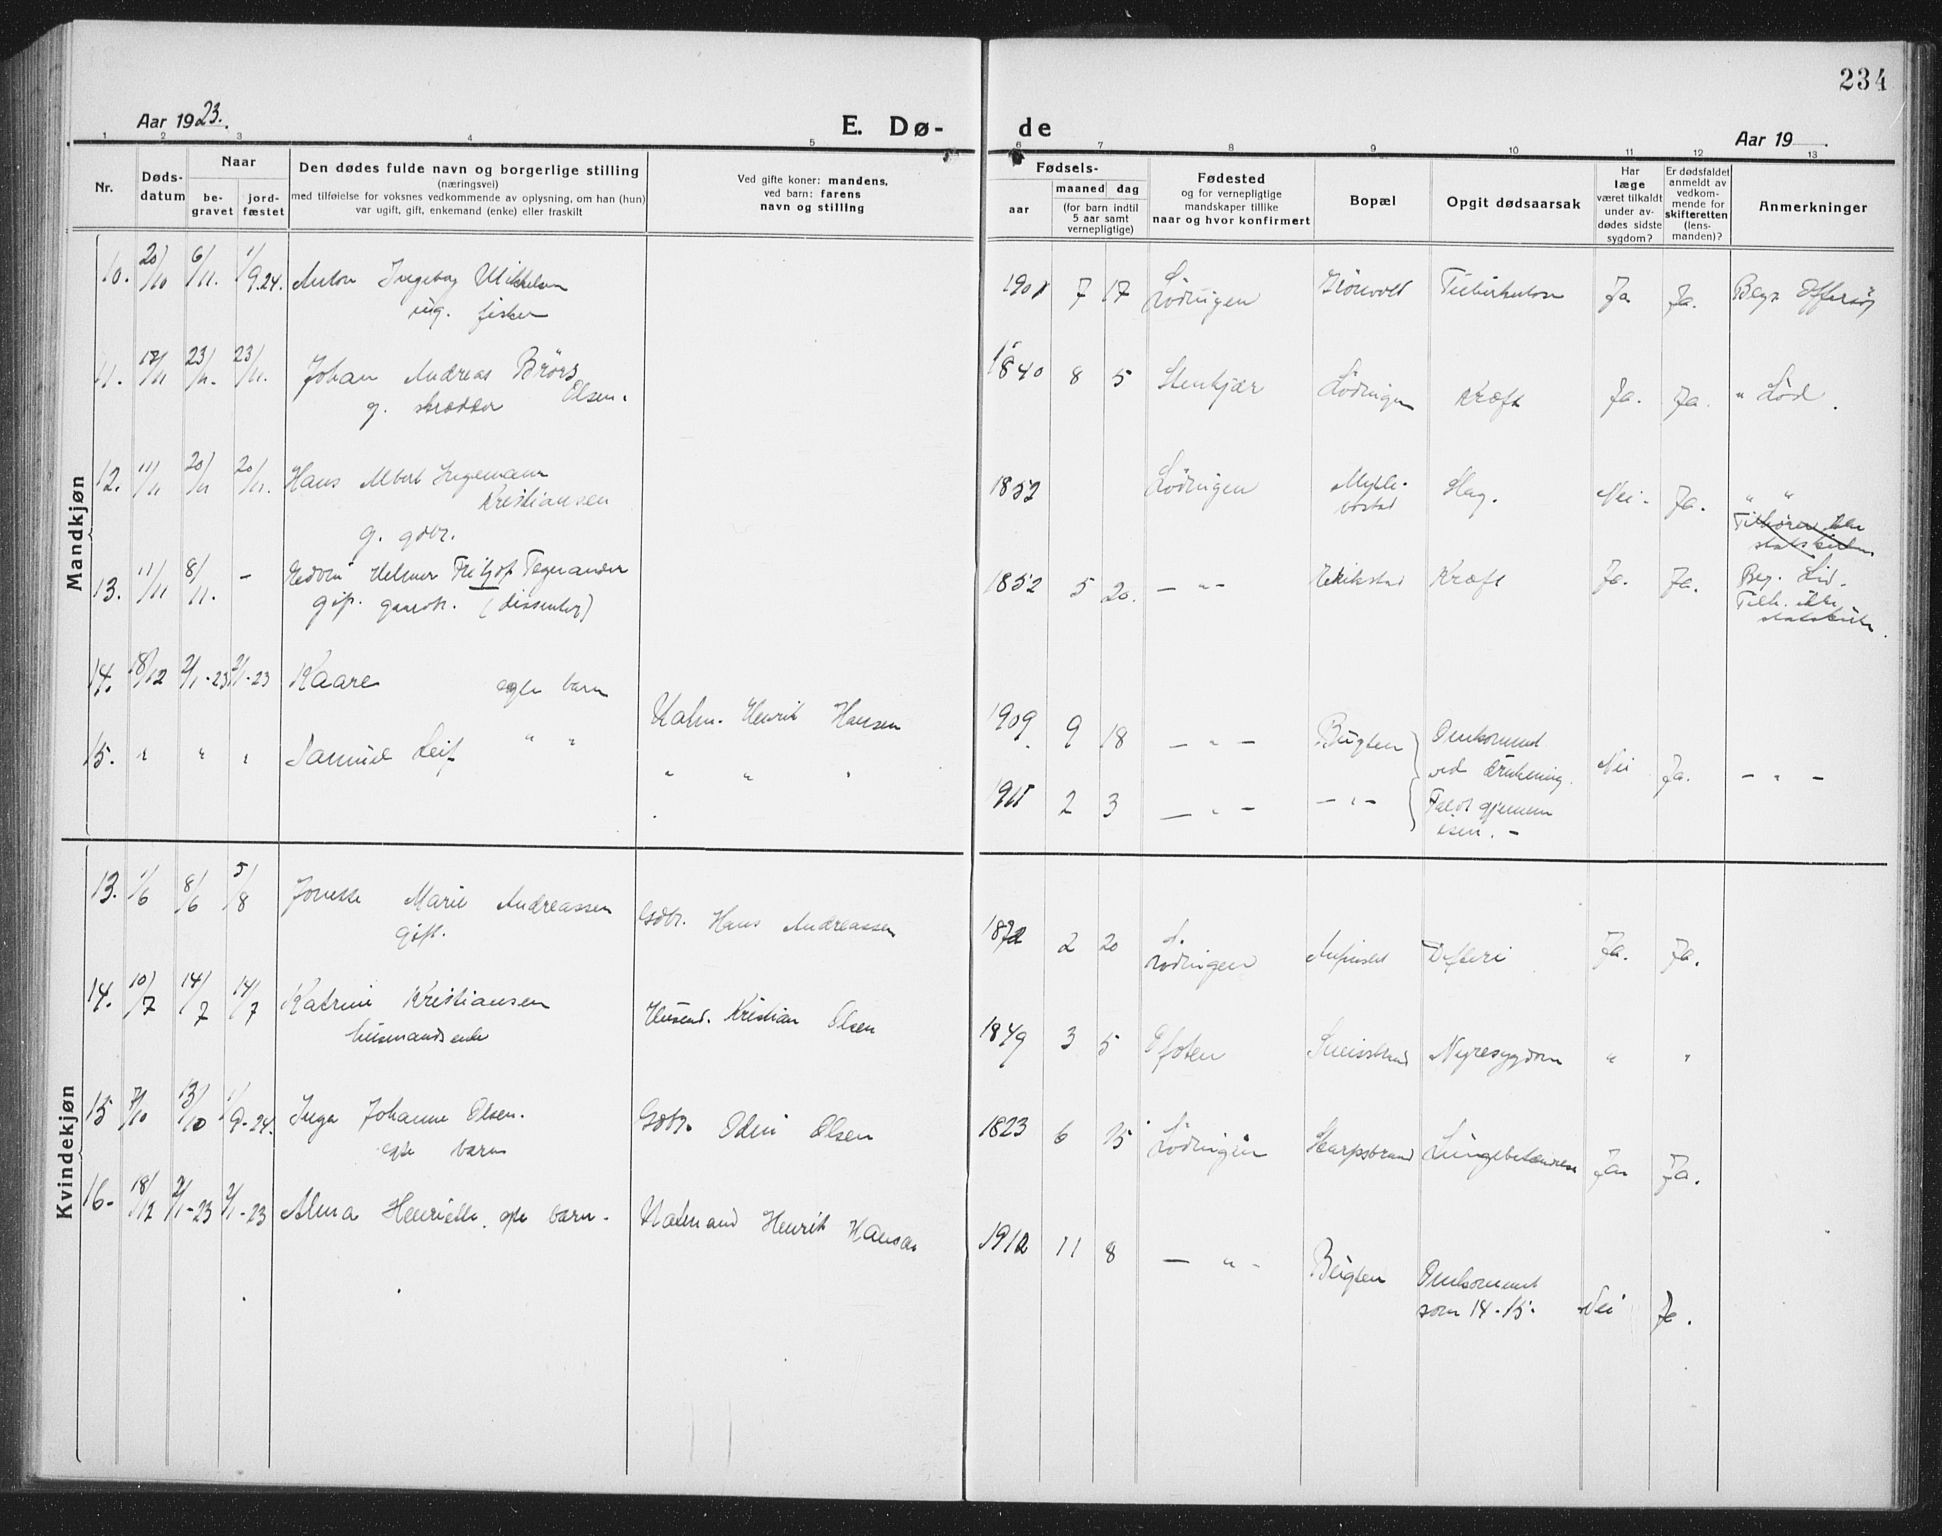 234
Aar 1923.
E. Dø-
de
Aar 19
1 2 3 4 5 6 7 8 9 10 11 12 13
Nr.
Døds-
datum
Naar
be-
gravet
jord-
fæstet
Den dødes fulde navn og borgerlige stilling
(næringsvei)
med tilføielse for voksnes vedkommende av oplysning, om han (hun)
var ugift, gift, enkemand (enke) eller fraskilt
Ved gifte koner: mandens,
ved barn: farens
navn og stilling
Fødsels-
aar
maaned dag
(for barn indtil
5 aar samt
vernepligtige)
Fødested
og for vernepligtige
mandskaper tillike
naar og hvor konfirmert
Bopæl
Opgit dødsaarsak
Har
læge
været tilkaldt
under av-
dødes sidste
sygdom?
Er dødsfaldet
anmeldt av
vedkom-
mende for
skifteretten
(lens-
manden)?
Anmerkninger
Mandkjøn
10. 20/10 6/11. 1/9.24. Anton Ingeborg Mikkelsen 1901 7 17 Lødingen Ja Ja.
ug. fisker
11. 23/11. 23/11. Johan Andreas Brørs 1840 8 5 Stenkjær Lødingen Kræft Ja. Ja. " Lød.
g. skrædder Olsen.
12. 11/11 20/11 20/11. Hans Albert Ingemann 1852 Lødingen Slag. Nei. Ja. " "
Kristiansen
g. gdbr.
Tilhører ikke
statskirken
13. 11/11 8/11. - Helmer Tegnander 1852 5 20. - " - Kræft Ja. Ja. Beg. Lød.
gift. gaardb. (dissenter) Tilh. ikke
statskirken.
14. 18/12 2/1-23 2/1-23 Kaare egte barn Henrik Hansen 1909 9 18 - " - Bugten Omkommet
ved drukning. Nei Ja. - " -
15. " " " Samuel Leif " " " " " 2 3 - " - - " - Faldt gjennem
isen. -
Kvindekjøn
13. 1/6 8/6 5/8 Marie Andreassen Gdbr. Hans Andreassen 2 20 Lødingen Ja. Ja.
gift.
14. 10/7 14/7 14/7 Katrine Kristiansen Husmd. Kristian Olsen 1849 3 5 Ofoten Nyresygdom " "
husmandsenke
15 7/10 13/10 1/9-24. Inga Johanne Olsen. Gdbr. Odin Olsen 1823 6 15 Lødingen Skarpstrand Lungebetændelse Ja Ja.
egte barn
16- 18/12 2/1-23 2/1-23 Alma Henriette, egte barn. Henrik Hansen 1912 11 8 - " - Bugten Omkommet
som 14-15. Nei Ja.